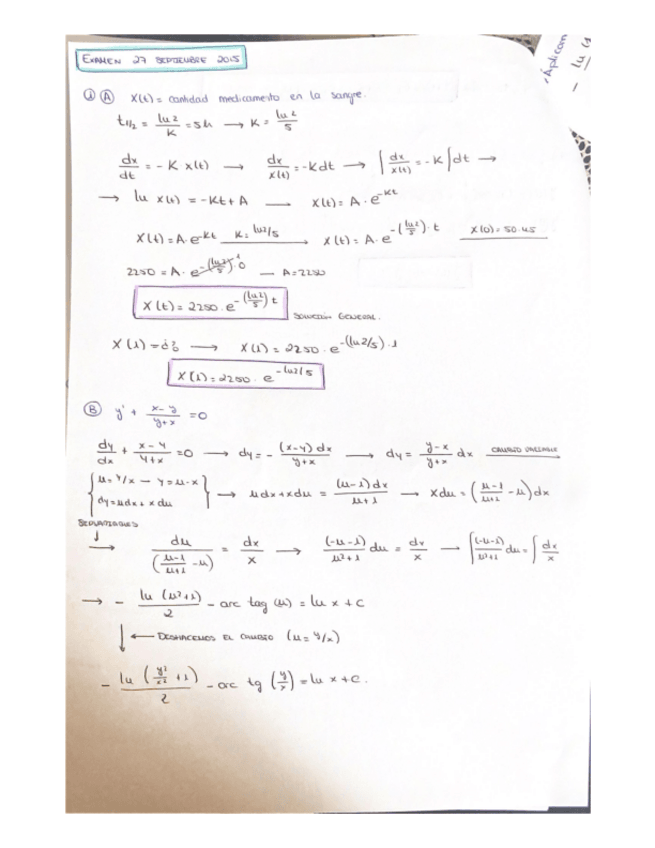 EXAMEN 27 SEPTIEMBRE 2015
① Ⓐ X(t) = cantidad medicamento en la sangre.
t1/2 = ln2/K = 5h → K = ln2/5
dx/dt = -K x(t) → dx/x(t) = -Kdt → ∫ dx/x(t) = -K ∫ dt →
→ ln x(t) = -Kt + A — x(t) = A · e^-Kt
X(t) = A·e^-Kt K = ln2/5 → X(t) = A·e^-(ln2/5)·t X(0) = 50·45
2250 = A · e^-(ln2/5)·0 — A = 2250
X(t) = 2250 · e^-(ln2/5)t
SOLUCIÓN GENERAL.
X(1) = ¿? → X(1) = 2250 · e^-(ln2/5)·1
X(1) = 2250 · e^-ln2/5
Ⓑ y' + (x-y)/(y+x) = 0
dy/dx + (x-y)/(y+x) = 0 → dy = -(x-y)dx/(y+x) → dy = (y-x)/(y+x) dx CAMBIO VARIABLE
{u = y/x → y = u·x
dy = udx + xdu} → udx + xdu = (u-1)dx/(u+1) → xdu = ((u-1)/(u+1) - u)dx
SEPARABLES
↓
→ du/((u-1)/(u+1) - u) = dx/x → (-u-1)/(u²+1) du = dx/x → ∫ (-u-1)/(u²+1) du = ∫ dx/x
→ - ln(u²+1)/2 - arc tag (u) = ln x + c
↓ ← DESHACEMOS EL CAMBIO (u = y/x)
- ln(y²/x² + 1)/2 - arc tg (y/x) = ln x + c.